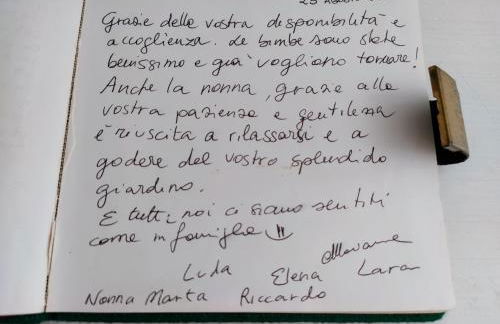 25 Agosto
Grazie della vostra disponibilità e
accoglienza. Le bimbe sono state
benissimo e già vogliono tornare!
Anche la nonna, grazie alla
vostra pazienza e gentilezza
è riuscita a rilassarsi e a
godere del vostro splendido
giardino.
E tutti noi ci siamo sentiti
come in famiglia
Luda Elena Lara
Nonna Marta Riccardo